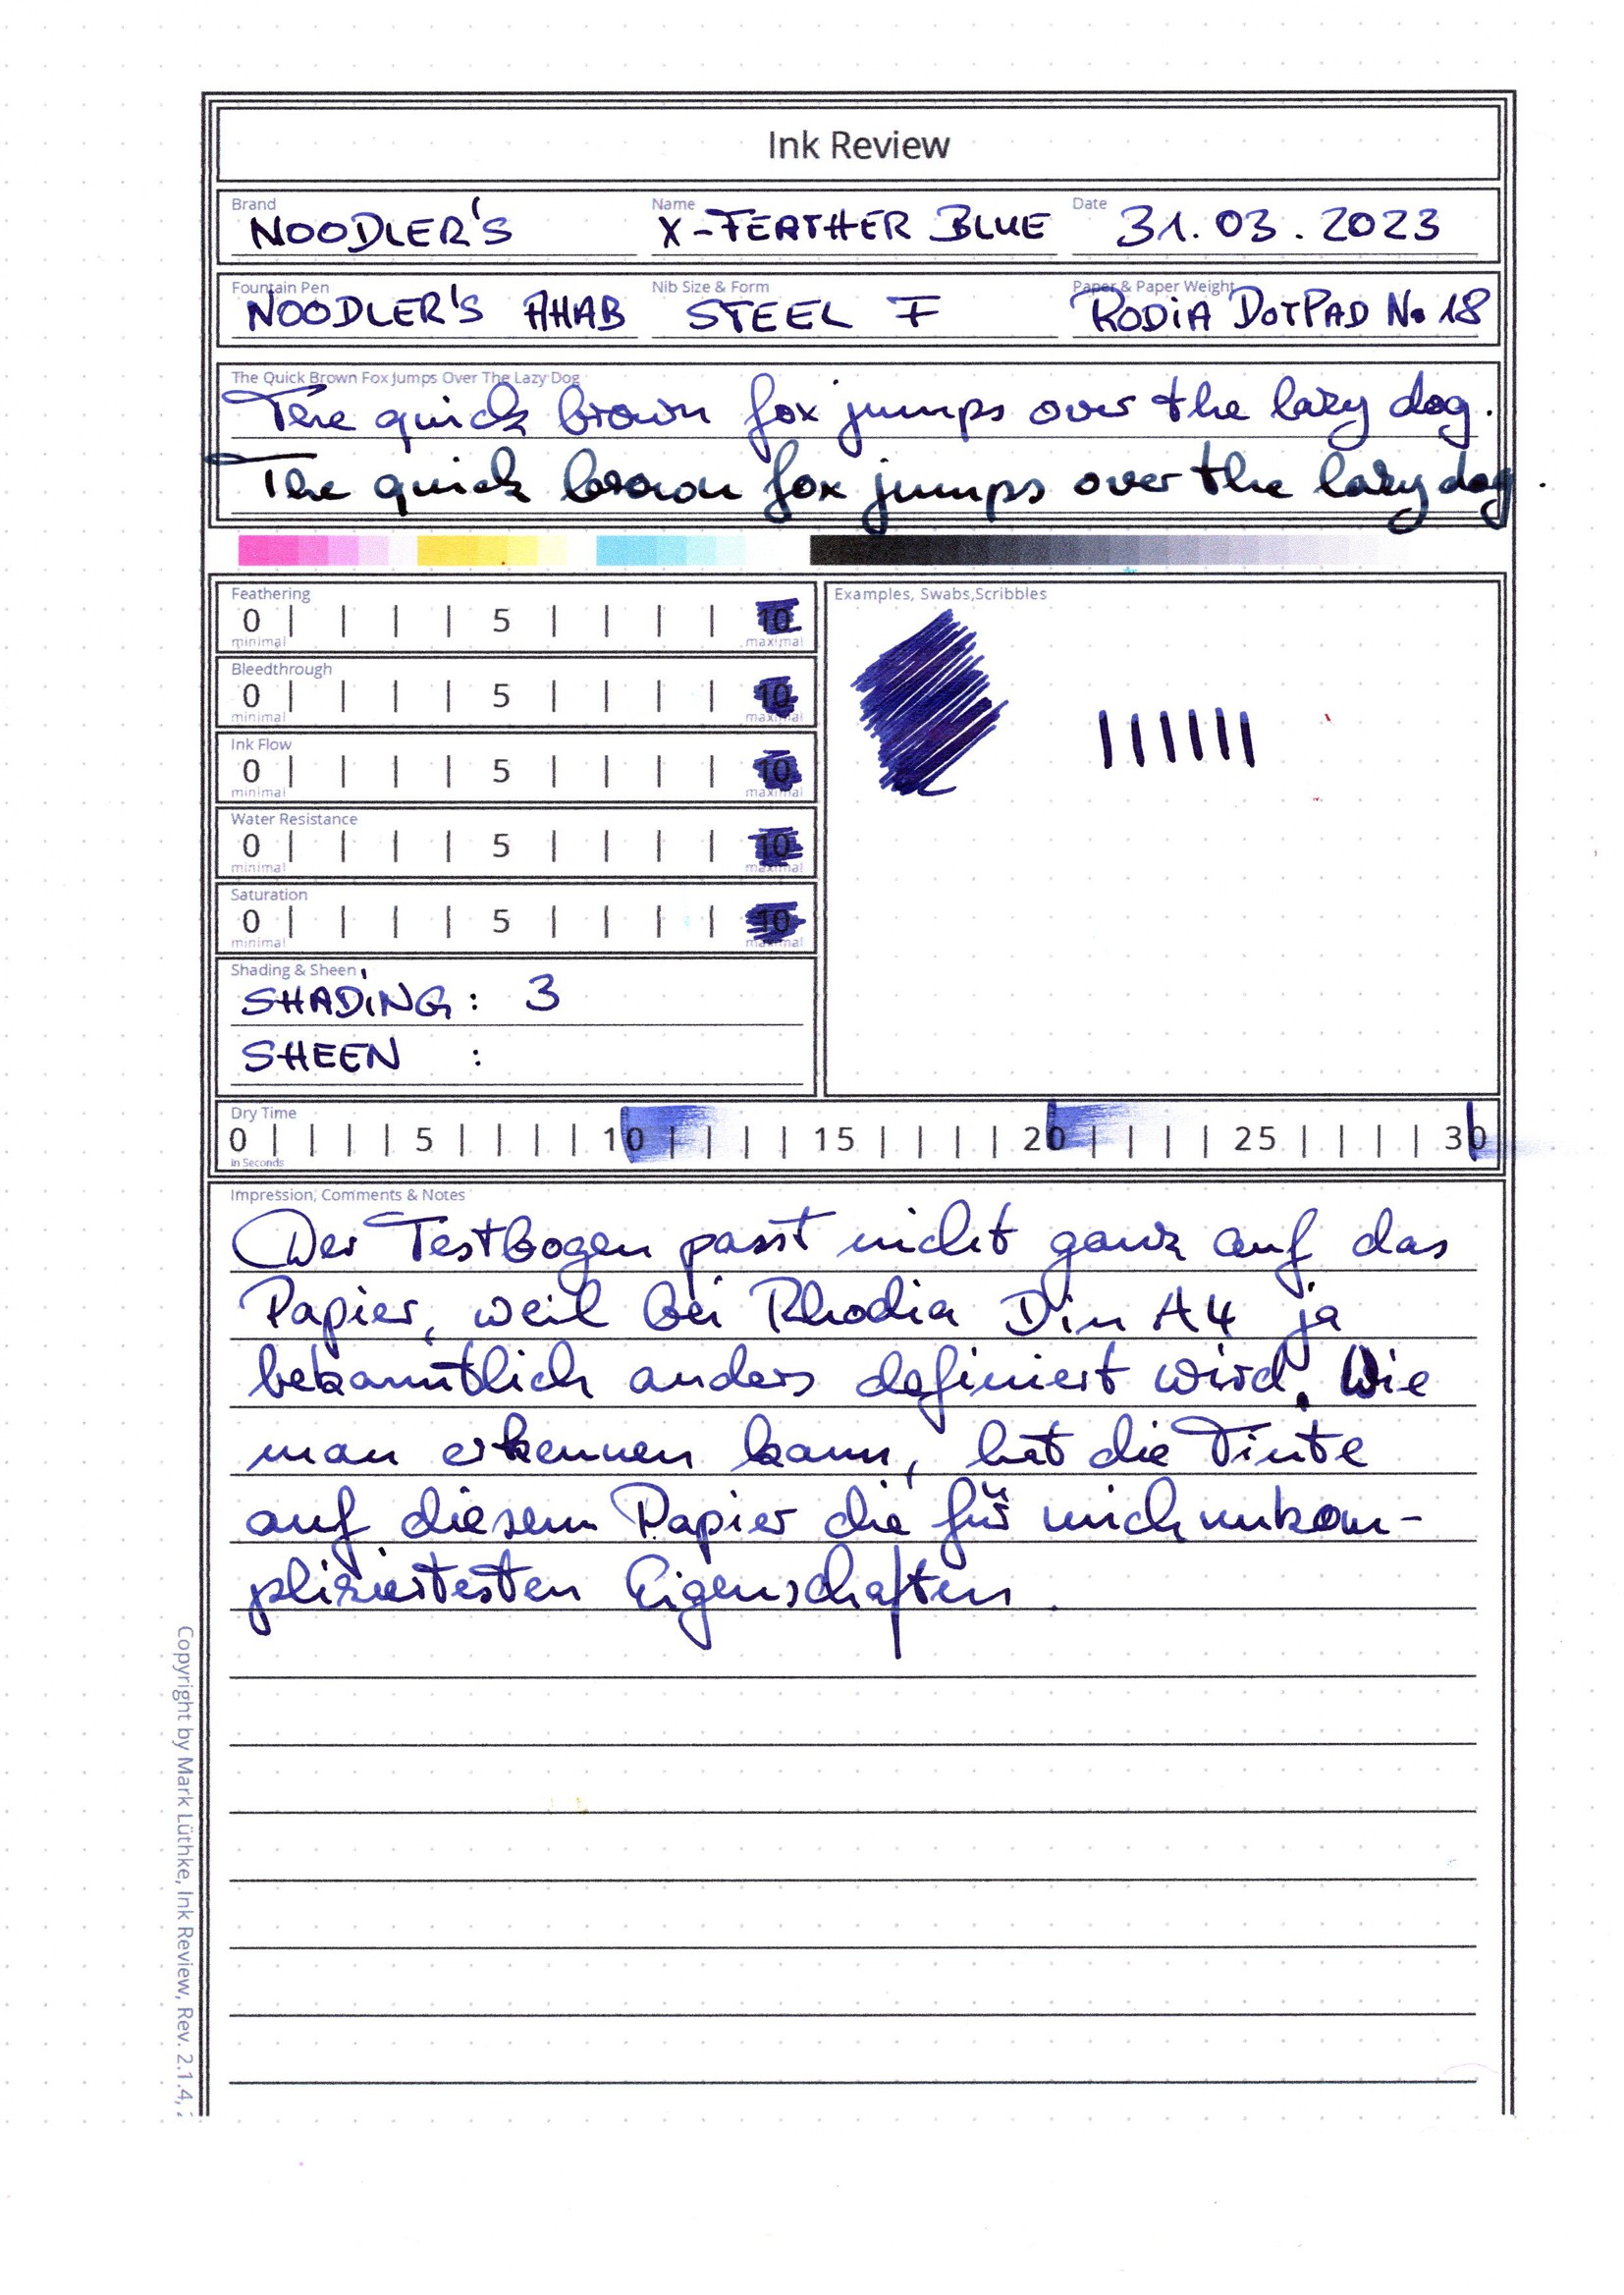 Ink Review
Brand Name Date
NOODLER'S X-FEATHER BLUE 31.03.2023
Fountain Pen Nib Size & Form Paper & Paper Weight
NOODLER'S AHAB STEEL F RODiA DOTPAD No 18
The Quick Brown Fox Jumps Over The Lazy Dog
The quick brown fox jumps over the lazy dog.
The quick brown fox jumps over the lazy dog.
Feathering
0 | | | | 5 | | | | 10
minimal maximal
Bleedthrough
0 | | | | 5 | | | | 10
minimal maximal
Ink Flow
0 | | | | 5 | | | | 10
minimal maximal
Water Resistance
0 | | | | 5 | | | | 10
minimal maximal
Saturation
0 | | | | 5 | | | | 10
minimal maximal
Shading & Sheen
SHADiNG : 3
SHEEN :
Examples, Swabs,Scribbles
Dry Time
0 | | | | 5 | | | | 10 | | | | 15 | | | | 20 | | | | 25 | | | | 30
in Seconds
Impression, Comments & Notes
Der Testbogen passt nicht ganz auf das
Papier, weil bei Rhodia Din A4 ja
bekanntlich anders definiert wird. Wie
man erkennen kann, hat die Tinte
auf diesem Papier die für mich unkom-
pliziertesten Eigenschaften.
Copyright by Mark Lüthke, Ink Review, Rev. 2.1.4,